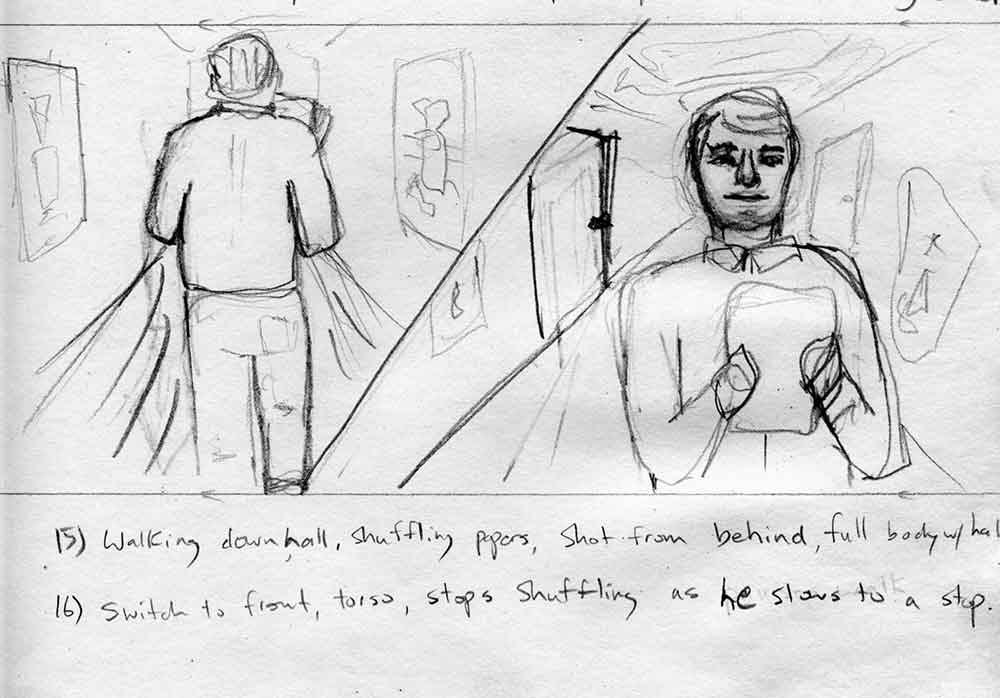 15) Walking down hall, shuffling papers, Shot from behind, full body w/ hal
16) Switch to front, torso, stops Shuffling as he slows to a stop.